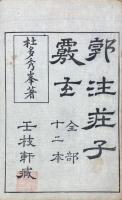 郭注莊子
覈玄
全部
十二本
杜多秀峯著
玉枝軒藏